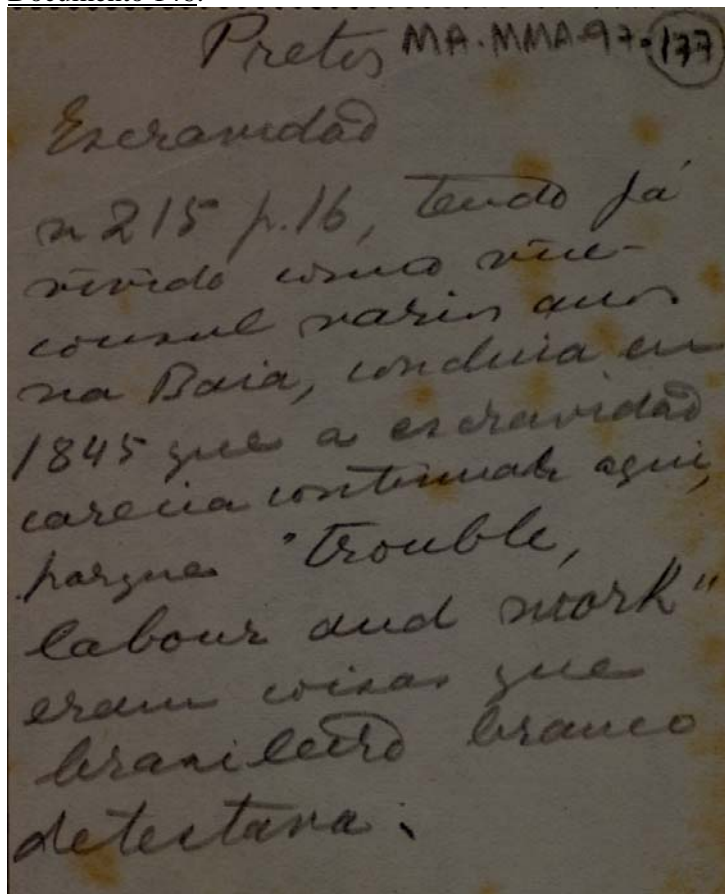 Documento 148:
Pretos MA-MMA-97-177
Escravidão
n 215 p.16, tendo já
vivido como vice-
consul varios anos
na Baia, concluia em
1845 que a escravidão
carecia continuar aqui,
porque "trouble,
labour and work"
eram coisas que
brasileiro branco
detestava.